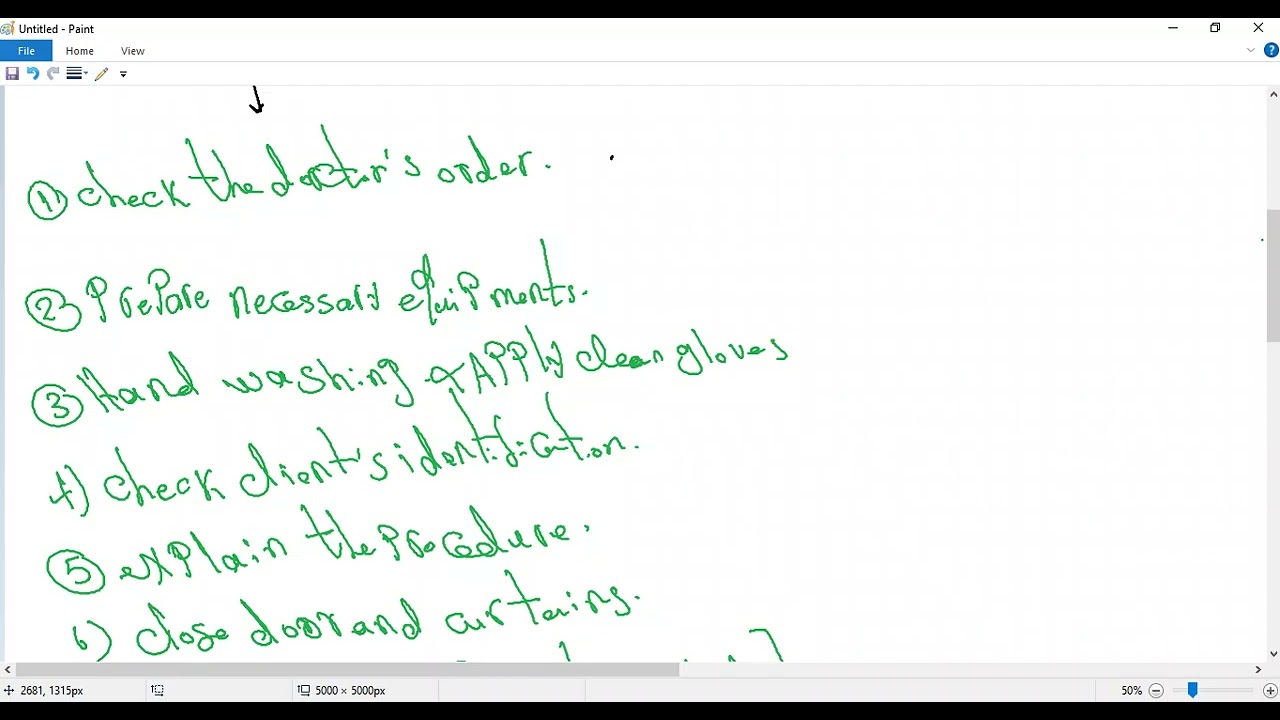 Untitled - Paint
File Home View
① check the doctor's order.
② Prepare necessary equipments.
③ Hand washing & APPly clean gloves
4) check client's identification.
⑤ explain the procedure.
6) close door and curtains.
2681, 1315px 5000 × 5000px 50%